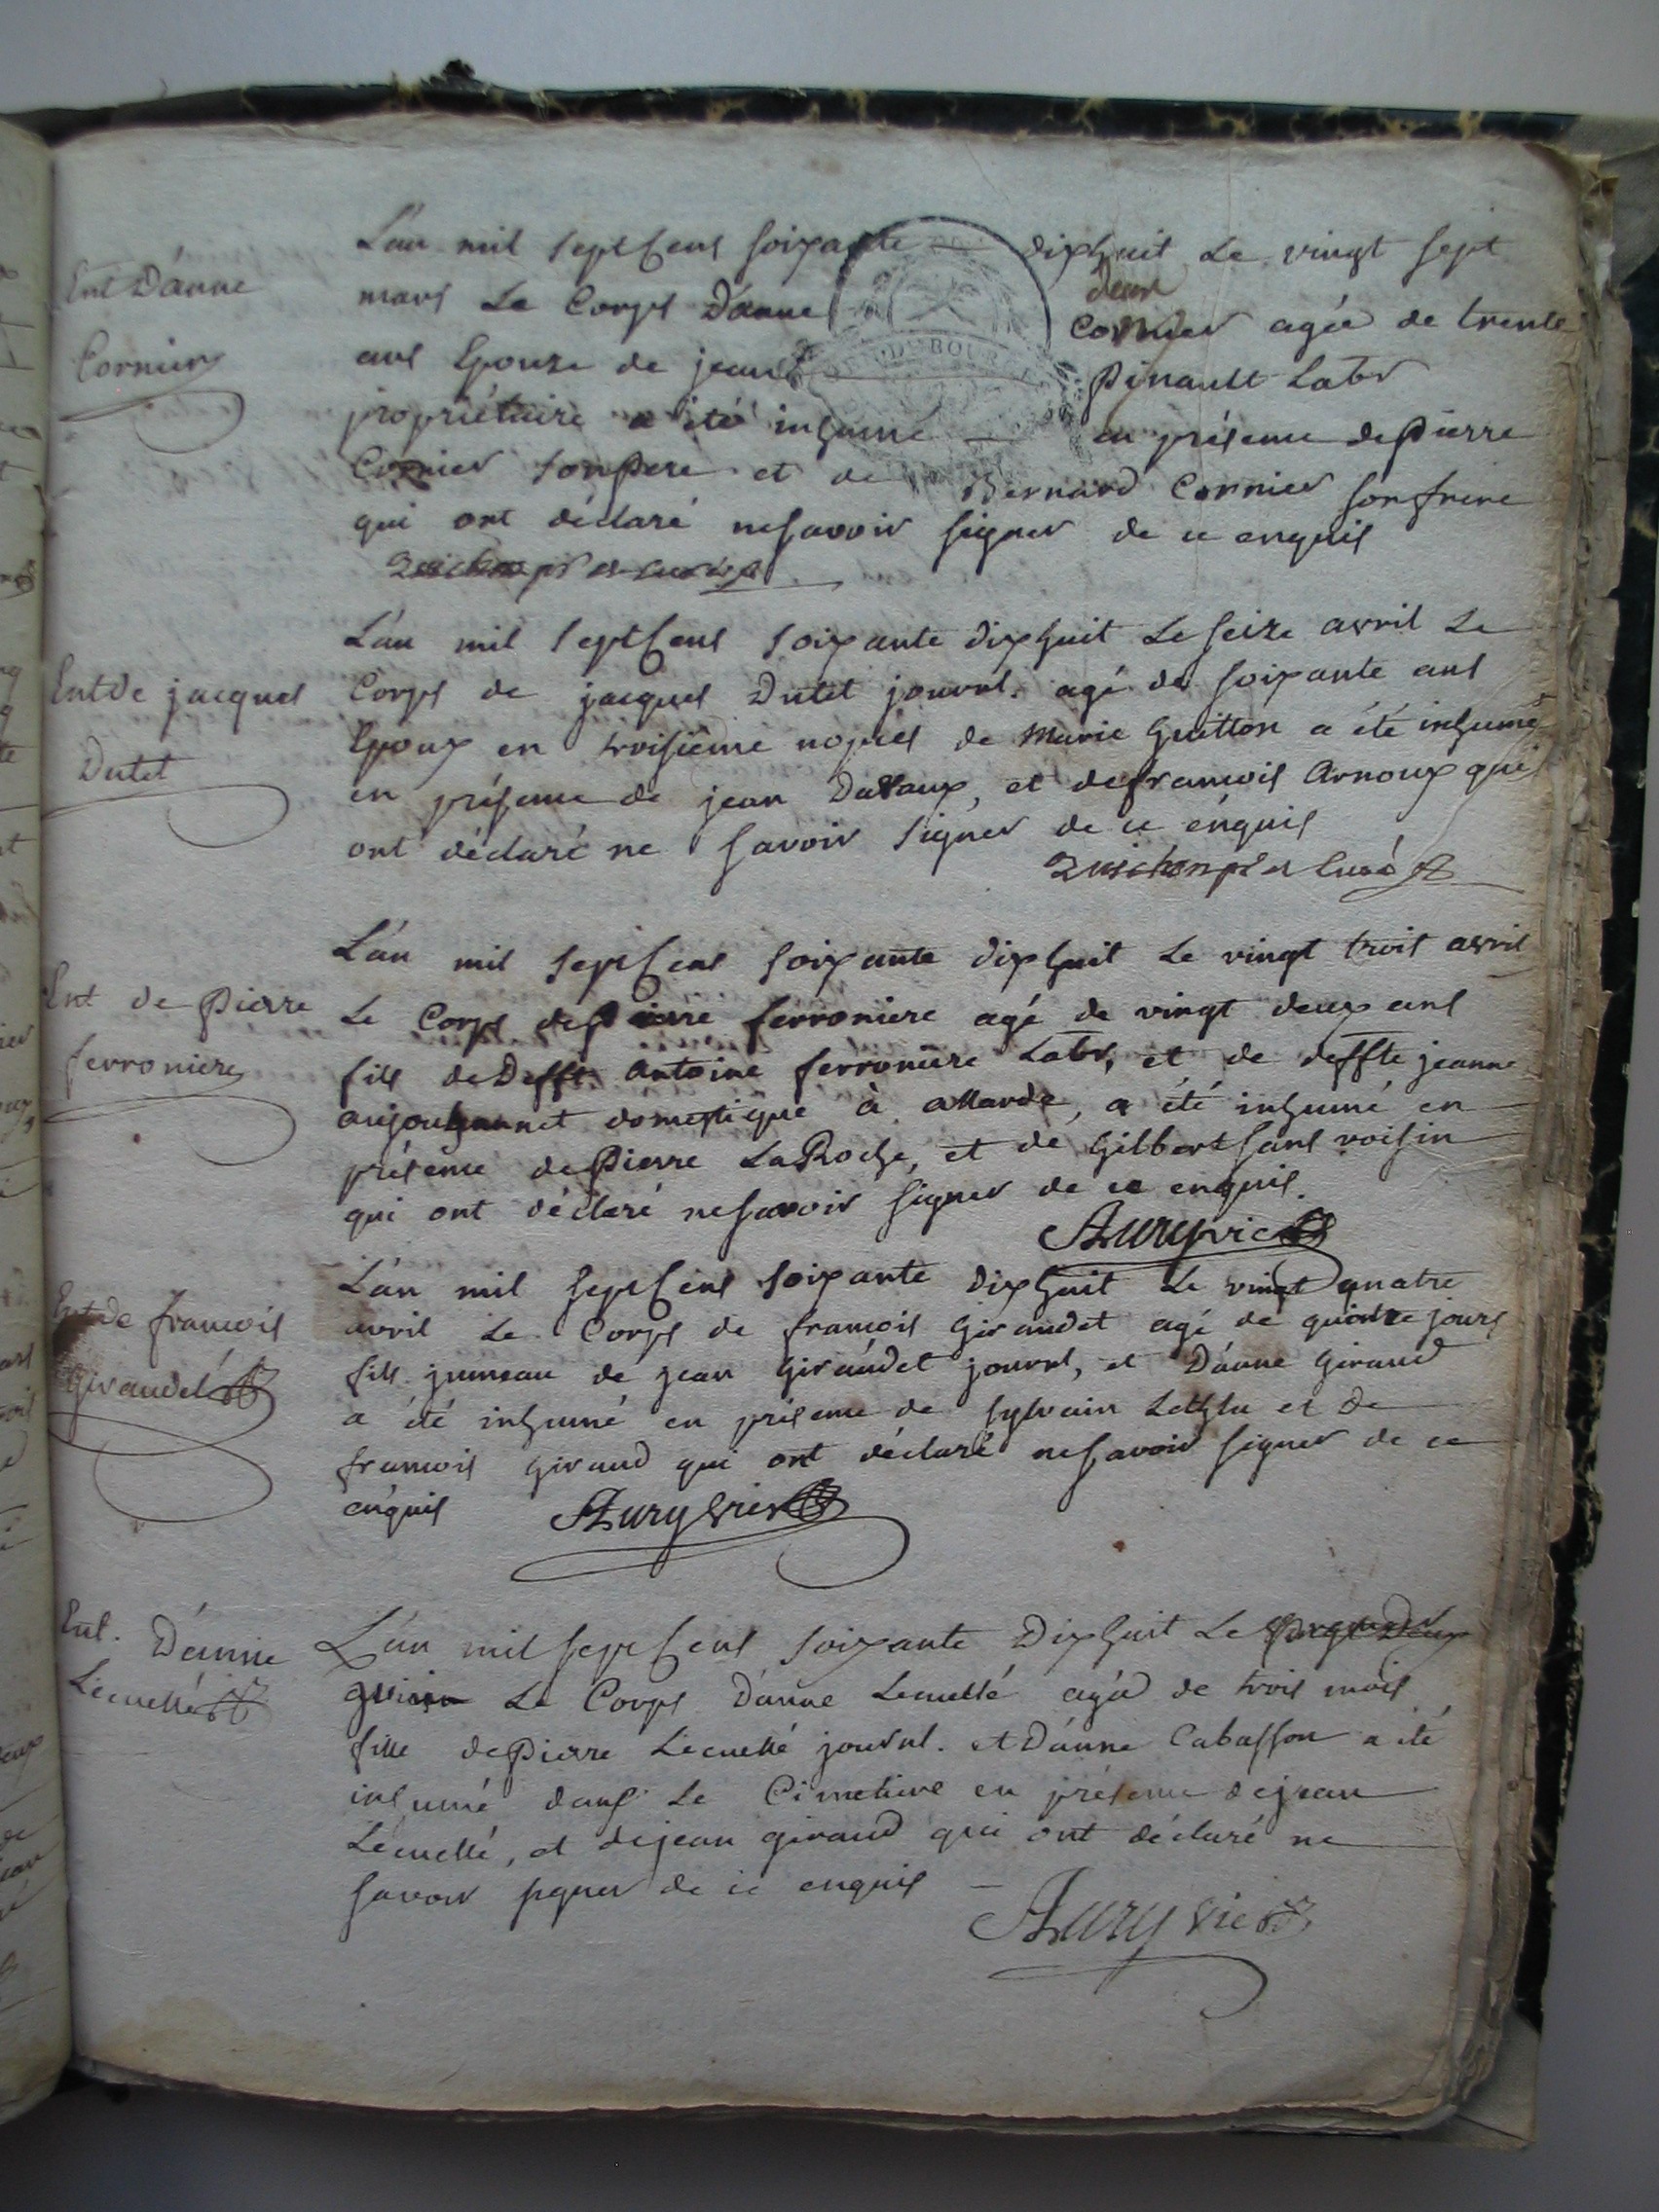 L'an mil sept Cens soixante — dixhuit Le vingt sept
Ent D'anne
mars Le Corps D'anne
deux
Cornier agée de trente
Cornier
ans Epouse de jean
Pinault Labr
propriétaire a été inhumé — en présence de Pierre
Cornier son Pere et de Bernard Cornier son frere
qui ont déclaré ne savoir signer de ce enquis
L'an mil sept Cens soixante dixhuit Le seize avril Le
Ent de jacques
Corps de jacques Dutet journl. agé de soixante ans
Epoux en troisième noces de Marie Guitton a été inhumé
Dutet
en présence de jean Davaux, et de francois Arnoux qui
ont déclaré ne savoir signer de ce enquis
curé
L'an mil sept Cens soixante dixhuit Le vingt trois avril
Ent de Pierre
Le Corps de Pierre ferroniere agé de vingt deux ans
ferroniere
fils de Defft. Antoine ferroniere Labr, et de deffte jeanne
domestique à allarde, a été inhumé en
présence de Pierre LaRoche, et de Gilbert sans voisin
qui ont déclaré ne savoir signer de ce enquis.
Aury vic
L'an mil sept Cens soixante dixhuit Le vingt quatre
Ent de francois
avril Le Corps de francois Giraudet agé de quinze jours
Giraudet
fils jumeau de jean Giraudet journl, et D'anne Giraud
a été inhumé en présence de sylvain Lethlu et de
francois Giraud qui ont déclaré ne savoir signer de ce
enquis Aury vic
Ent. D'anne
L'an mil sept Cens soixante Dixhuit Le
Lecuellé
Le Corps D'anne Lecuellé agée de trois mois
fille de Pierre Lecuellé journl. et D'anne Cabasson a été
inhumé dans Le Cimetiere en présence de jean
Lecuellé, et de jean giraud qui ont déclaré ne
savoir signer de ce enquis —
Aury vic